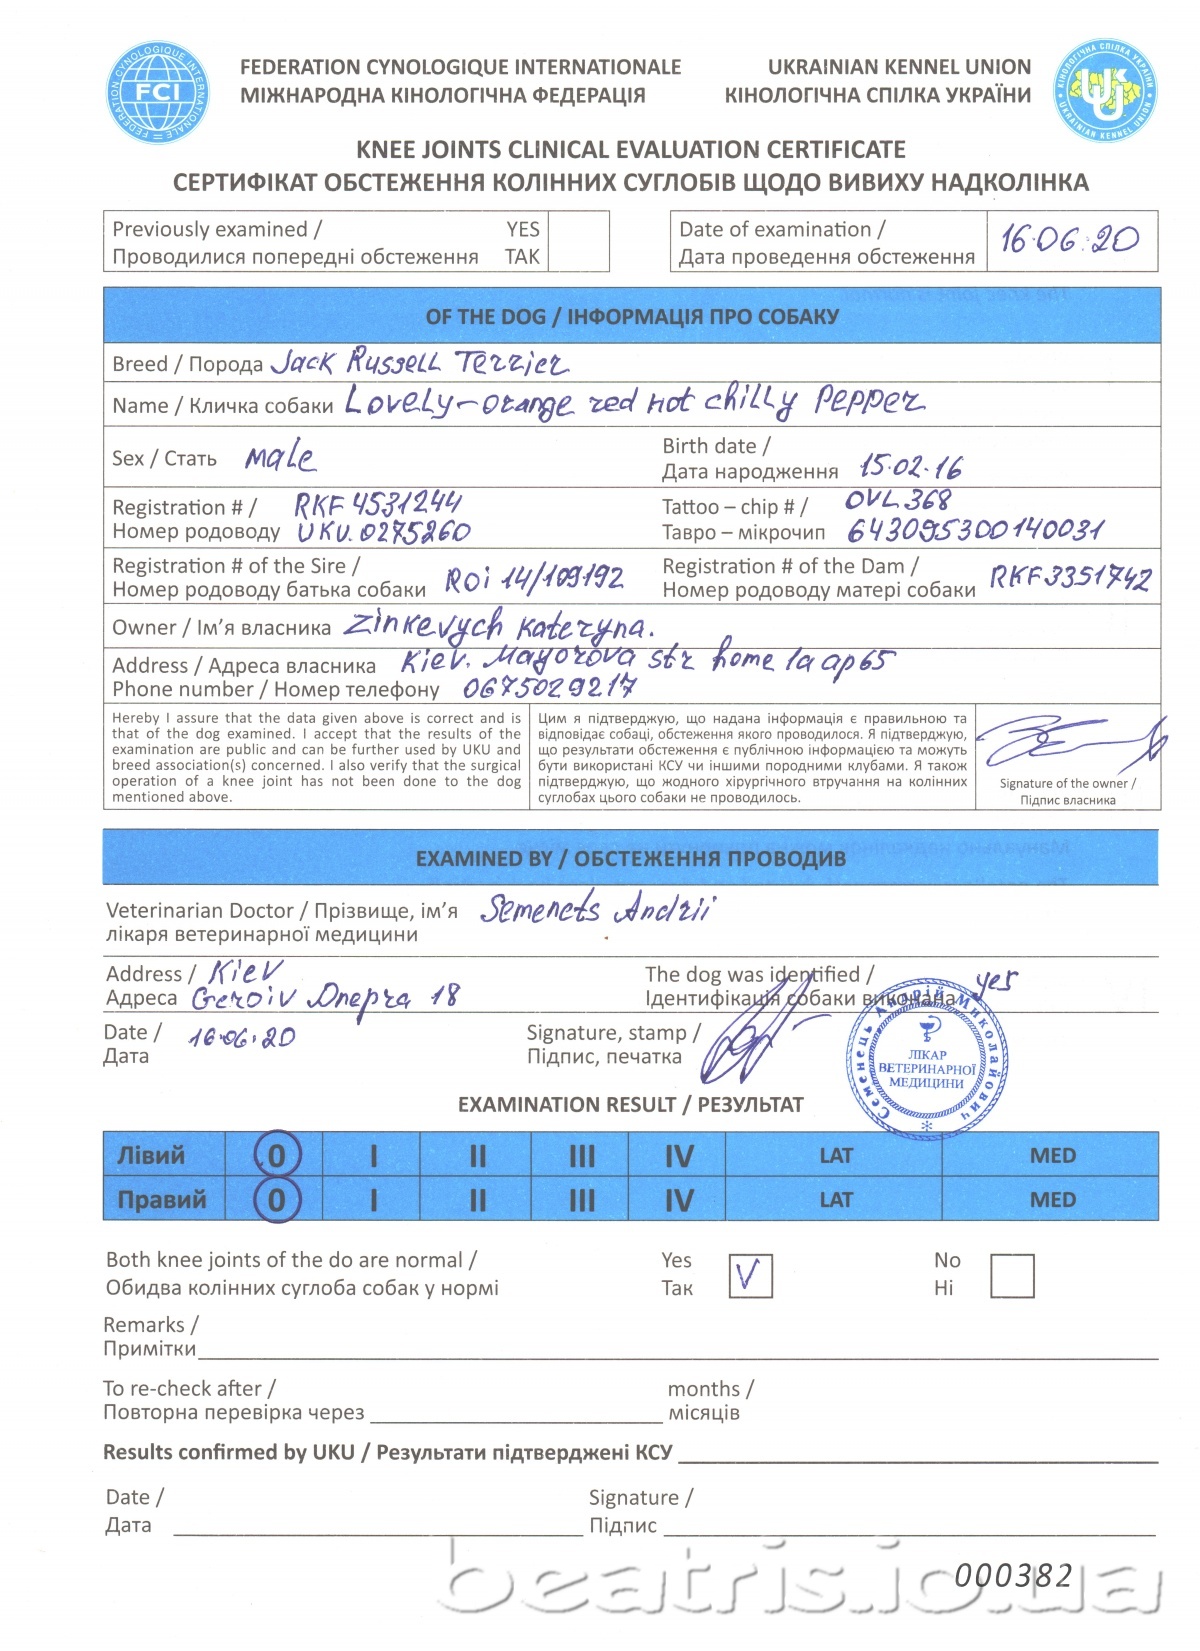 FEDERATION CYNOLOGIQUE INTERNATIONALE
МІЖНАРОДНА КІНОЛОГІЧНА ФЕДЕРАЦІЯ
UKRAINIAN KENNEL UNION
КІНОЛОГІЧНА СПІЛКА УКРАЇНИ
FEDERATION CYNOLOGIQUE INTERNATIONALE
FCI
КІНОЛОГІЧНА СПІЛКА УКРАЇНИ
UKU
UKRAINIAN KENNEL UNION
KNEE JOINTS CLINICAL EVALUATION CERTIFICATE
СЕРТИФІКАТ ОБСТЕЖЕННЯ КОЛІННИХ СУГЛОБІВ ЩОДО ВИВИХУ НАДКОЛІНКА
Previously examined / YES
Проводилися попередні обстеження ТАК
Date of examination /
Дата проведення обстеження 16.06.20
OF THE DOG / ІНФОРМАЦІЯ ПРО СОБАКУ
Breed / Порода Jack Russell Terrier
Name / Кличка собаки Lovely-orange red hot chilly Pepper
Sex / Стать male
Birth date /
Дата народження 15.02.16
Registration # / RKF 4531244
Номер родоводу UKU.0275260
Tattoo – chip # / OVL 368
Тавро – мікрочип 643095300140031
Registration # of the Sire /
Номер родоводу батька собаки ROI 14/109192
Registration # of the Dam /
Номер родоводу матері собаки RKF3351742
Owner / Ім’я власника Zinkevych Kateryna.
Address / Адреса власника Kiev. Mayorova str home 1a ap65
Phone number / Номер телефону 0675029217
Hereby I assure that the data given above is correct and is
that of the dog examined. I accept that the results of the
examination are public and can be further used by UKU and
breed association(s) concerned. I also verify that the surgical
operation of a knee joint has not been done to the dog
mentioned above.
Цим я підтверджую, що надана інформація є правильною та
відповідає собаці, обстеження якого проводилося. Я підтверджую,
що результати обстеження є публічною інформацією та можуть
бути використані КСУ чи іншими породними клубами. Я також
підтверджую, що жодного хірургічного втручання на колінних
суглобах цього собаки не проводилось.
Signature of the owner /
Підпис власника
EXAMINED BY / ОБСТЕЖЕННЯ ПРОВОДИВ
Veterinarian Doctor / Прізвище, ім’я Semenets Andrii
лікаря ветеринарної медицини
Address / Kiev
Адреса Geroiv Dnepra 18
The dog was identified / yes
Ідентифікація собаки виконана
Date / 16.06.20
Дата
Signature, stamp /
Підпис, печатка
Семенець Андрій Миколайович
ЛІКАР
ВЕТЕРИНАРНОЇ
МЕДИЦИНИ
EXAMINATION RESULT / РЕЗУЛЬТАТ
Лівий 0 I II III IV LAT MED
Правий 0 I II III IV LAT MED
Both knee joints of the do are normal /
Обидва колінних суглоба собак у нормі
Yes
Так V
No
Ні
Remarks /
Примітки
To re-check after / months /
Повторна перевірка через місяців
Results confirmed by UKU / Результати підтверджені КСУ
Date /
Дата
Signature /
Підпис
000382
beatris.io.ua